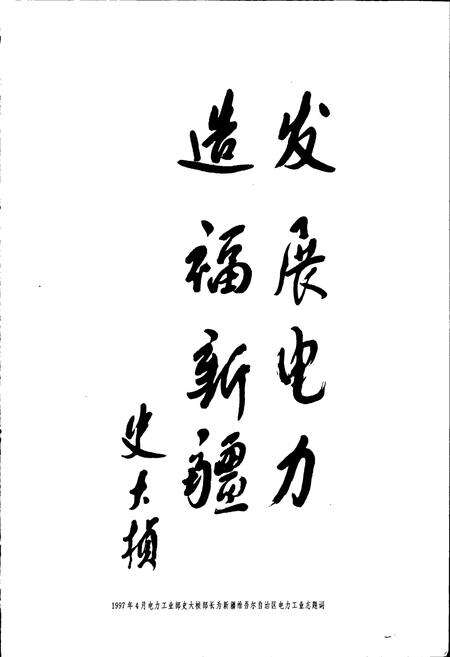 发展电力
造福新疆
史大桢
1997年4月电力工业部史大桢部长为新疆维吾尔自治区电力工业志题词